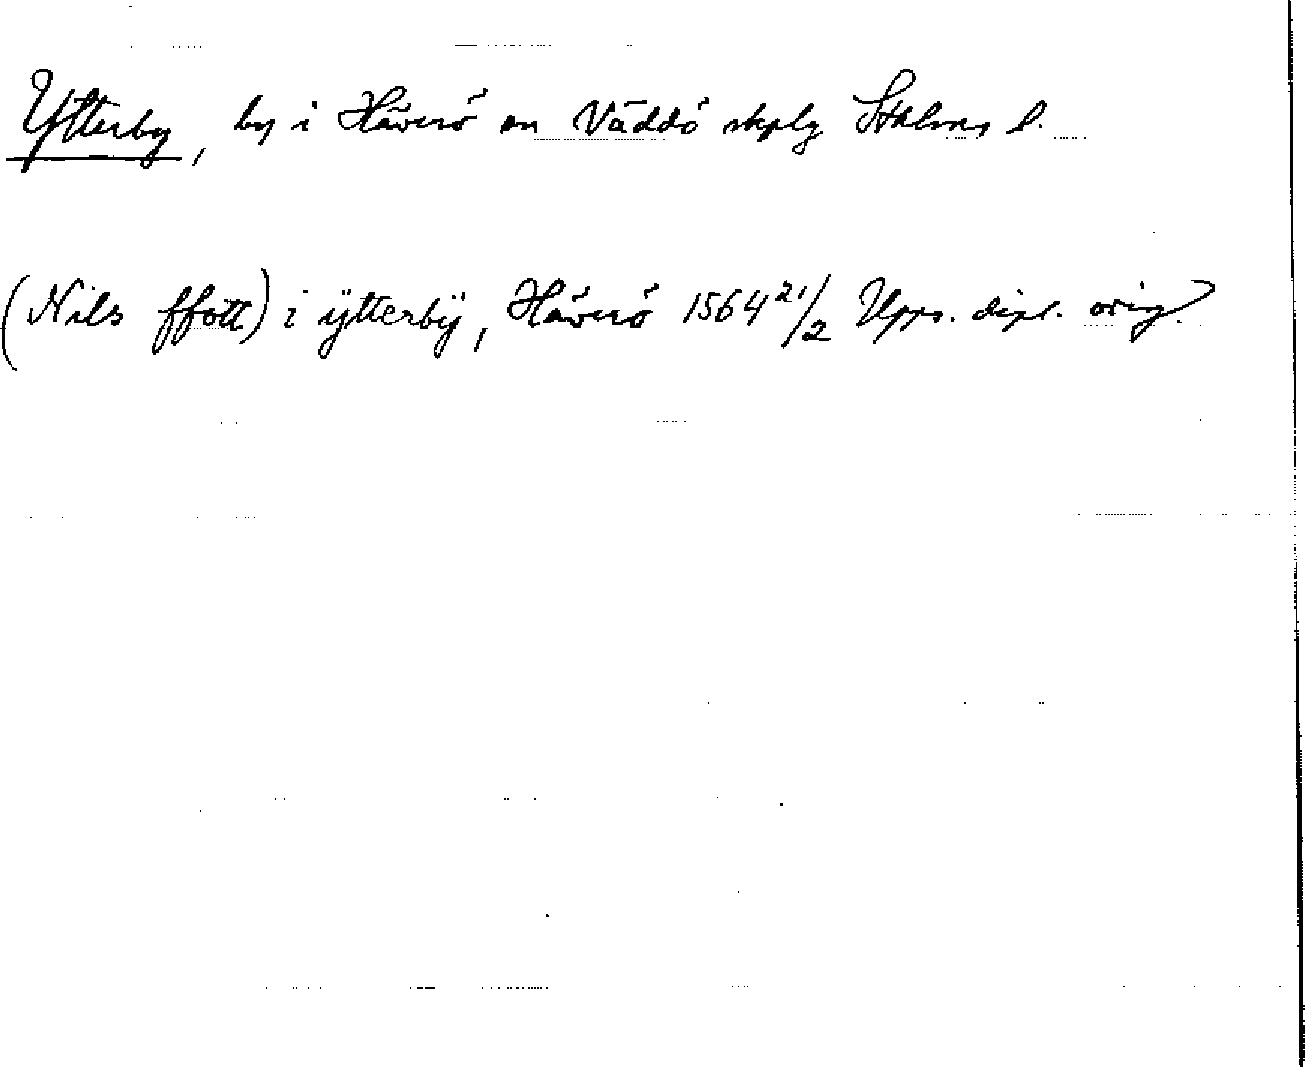 Ytterby, by i Häverö sn Väddö skplg Sthlms l.
(Nils ffott) i ÿtterbÿ, Häverö 1564 21/2 Upps. dipl. orig.